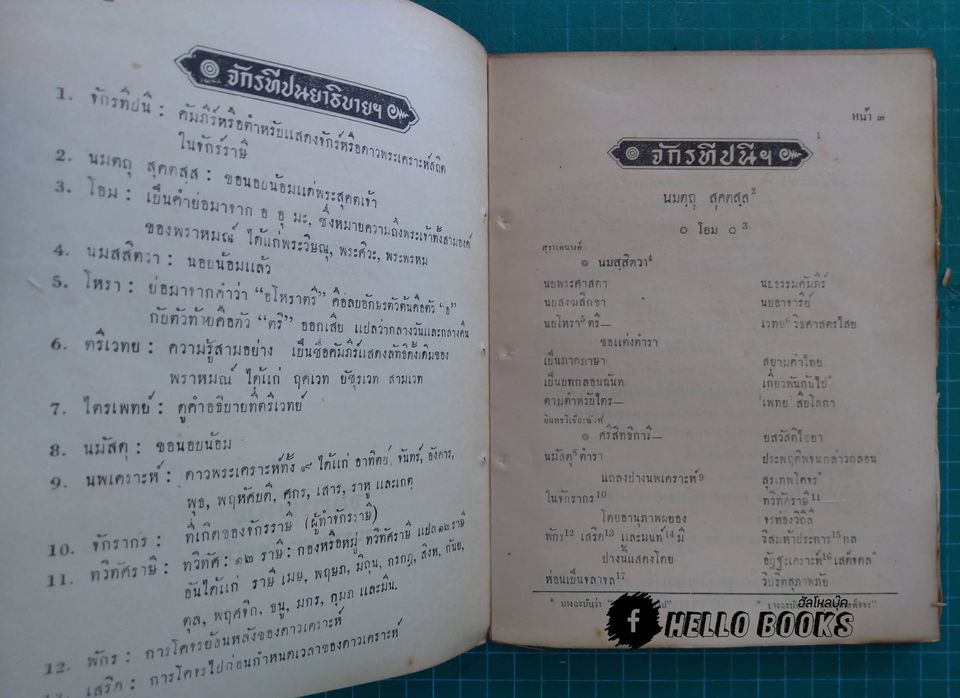 จักรทีปนยาธิบายฯ
1. จักรทีปนี : คัมภีร์หรือตำหรับแสดงจักร์หรือดาวพระเคราะห์สถิต
ในจักร์ราษี
2. นมตฺถุ สุคตสฺส : ขอนอบน้อมแด่พระสุคตเจ้า
3. โอม : เป็นคำย่อมาจาก อ อุ มะ, ซึ่งหมายความถึงพระเจ้าทั้งสามองค์
ของพราหมณ์ ได้แก่พระวิษณุ, พระศิวะ, พระพรหม
4. นมสฺสิตวา : นอบน้อมแล้ว
5. โหรา : ย่อมาจากคำว่า "อโหราตรี" คือลบอักษรตัวต้นคือตัว "อ"
กับตัวท้ายคือตัว "ตรี" ออกเสีย แปลว่ากลางวันและกลางคืน
6. ตรีเวทย : ความรู้สามอย่าง เป็นชื่อคัมภีร์แสดงลัทธิดั้งเดิมของ
พราหมณ์ ได้แก่ ฤคเวท ยัชุรเวท สามเวท
7. ไตรเพทย์ : ดูคำอธิบายที่ตรีเวทย์
8. นมัสตุ : ขอนอบน้อม
9. นพเคราะห์ : ดาวพระเคราะห์ทั้ง ๙ ได้แก่ อาทิตย์, จันทร์, อังคาร,
พุธ, พฤหัศบดี, ศุกร, เสาร, ราหู และเกตุ
10. จักรากร : ที่เกิดของจักรราษี (ผู้ทำจักรราษี)
11. ทวีทัศราษี : ทวีทัศ : ๑๒ ราษี : กองหรือหมู่ ทวีทัศราษี แปล ๑๒ ราษี
อันได้แก่ ราษี เมษ, พฤษภ, มิถุน, กรกฎ, สิงห, กันย,
ตุล, พฤศจิก, ธนู, มกร, กุมภ และมีน.
12. พักร : การโคจรย้อนหลังของดาวเคราะห์
เสริด : การโคจรไปก่อนกำหนดเวลาของดาวเคราะห์
หน้า ๓
จักรทีปนีฯ 1
นมตฺถุ สุคตสฺส 2
๐ โอม ๐ 3
สุรางคนางค์
๏ นมสฺสิตวา 4
นบพระศาสดา นบธรรมคัมภีร์
นบสงฆสิกขา นบอาจารีย์
นบโหรา 5 ตรี— เวทย 6 วิชศาสตรไสย
ขอแต่งตำรา
เป็นภาคภาษา สยามคำไทย
เป็นบทกลอนฉันท เกี่ยวพันกันไป
ตามตำหรับไตร— เพทย สืบโลกา
อินทรวิเชียรฉันท์
๏ ศรีสิทธิการี— ยสวัสดิไชยา
นมัสตุ 8 ตำรา ประพฤติพจนกล่าวกลอน
แถลงปางนพเคราะห์ 9 สุรเทพโคจร
ในจักรากร 10 ทวีทัศราษี 11
โดยอานุภาพผยอง จรท่องวิถี
พักร 12 เสริด 13 และมนท์ 14 มี วิสมห้าประการ 15 กล
ปางนั้นแสดงโดย อัฏฐะเคราะห์ 16 เสด็จดล
ห่อนเป็นจลาจล 17 วิปริตสุภาพภัย
ฮัลโหลบุ๊ค
f HELLO BOOKS